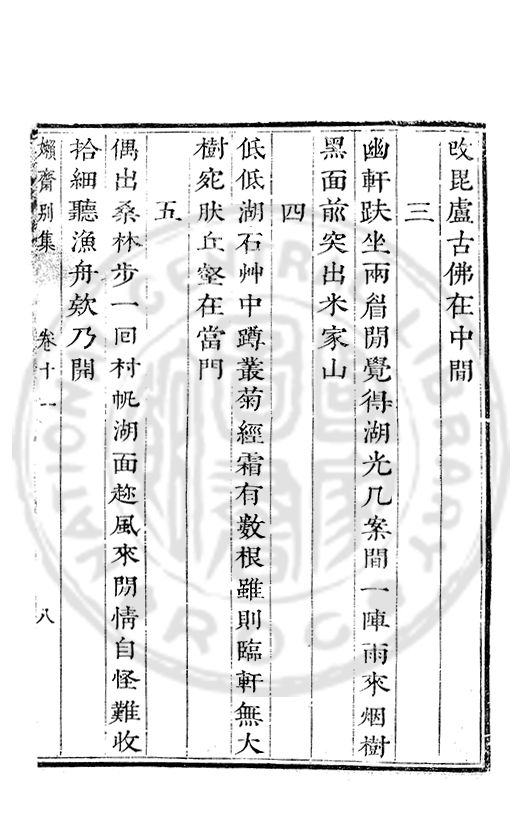 改毘盧古佛在中間
三
幽軒趺坐兩眉閒覺得湖光几案間一陣雨來烟樹
黑面前突出米家山
四
低低湖石艸中蹲叢菊經霜有數根雖則臨軒無大
樹宛肰丘壑在當門
五
偶出桑林步一回村帆湖面趂風來閒情自怪難收
拾細聽漁舟欸乃開
嬾齋別集 卷十一 八
NATIONAL CENTRAL LIBRARY R.O.C.